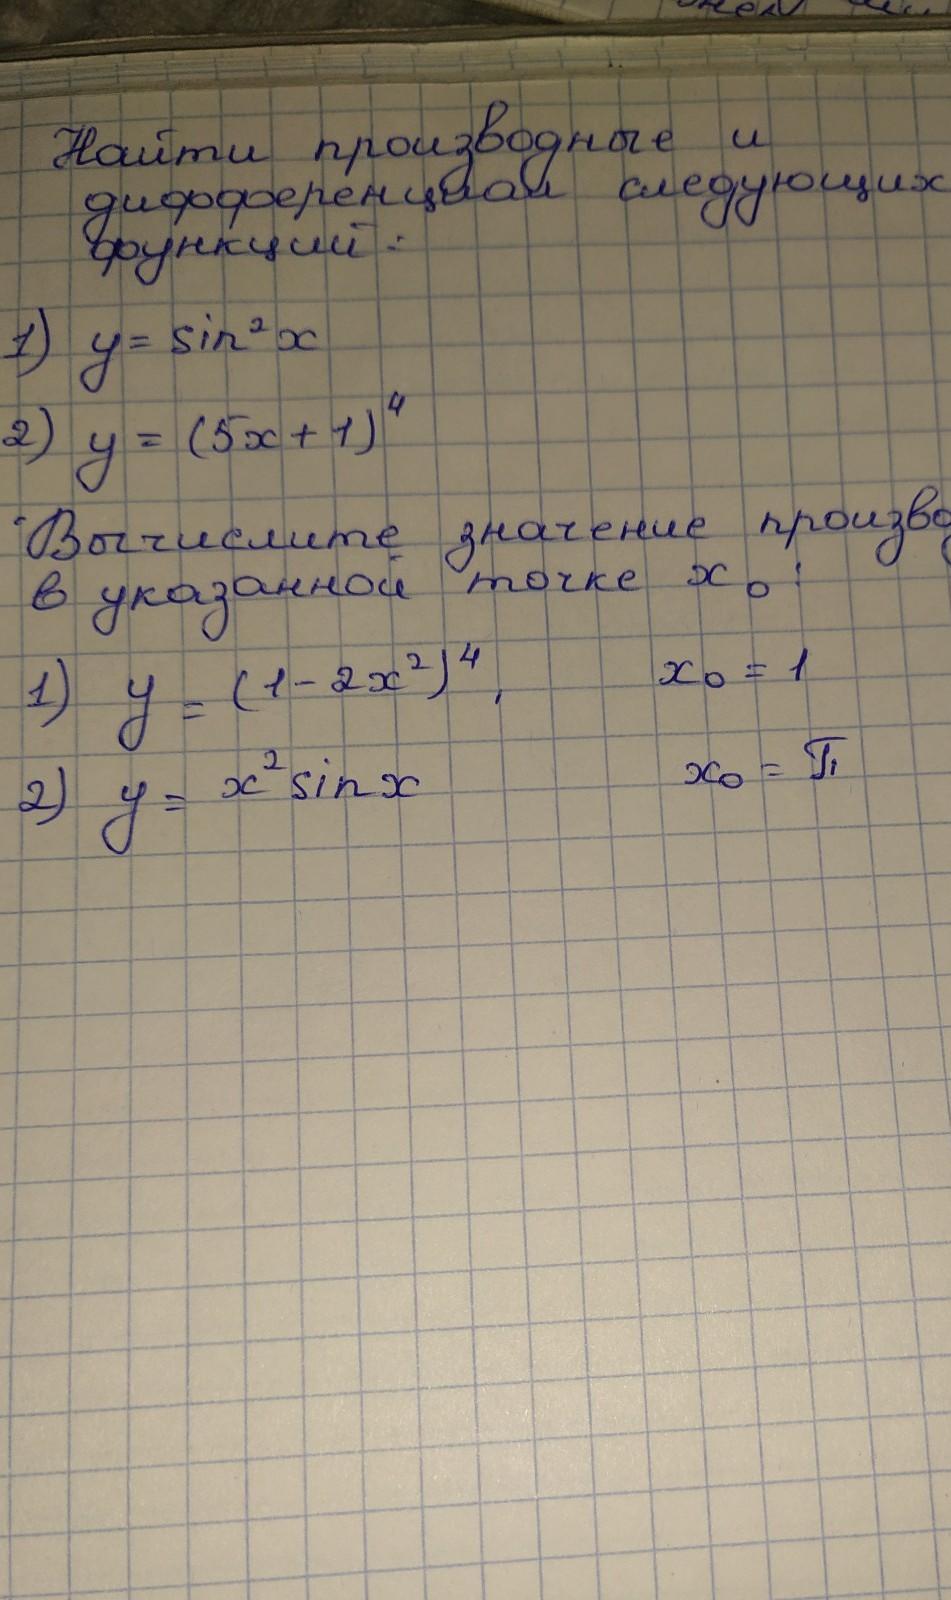 Найти производные и
дифференциал следующих
функций:
1) y = sin²x
2) y = (5x + 1)⁴
Вычислите значение произво
в указанной точке x₀:
1) y = (1 - 2x²)⁴, x₀ = 1
2) y = x² sin x x₀ = π